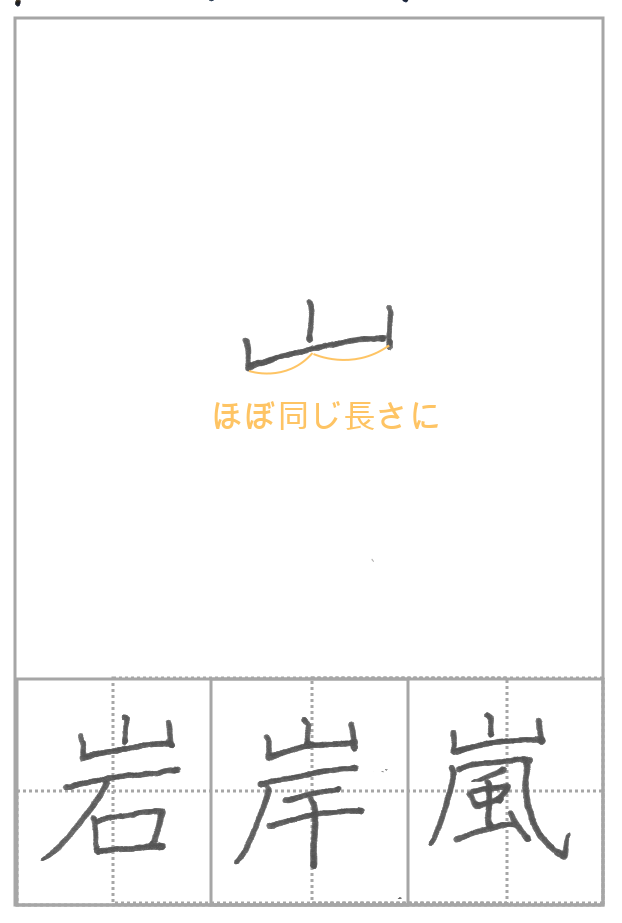 山
ほぼ同じ長さに
岩岸嵐